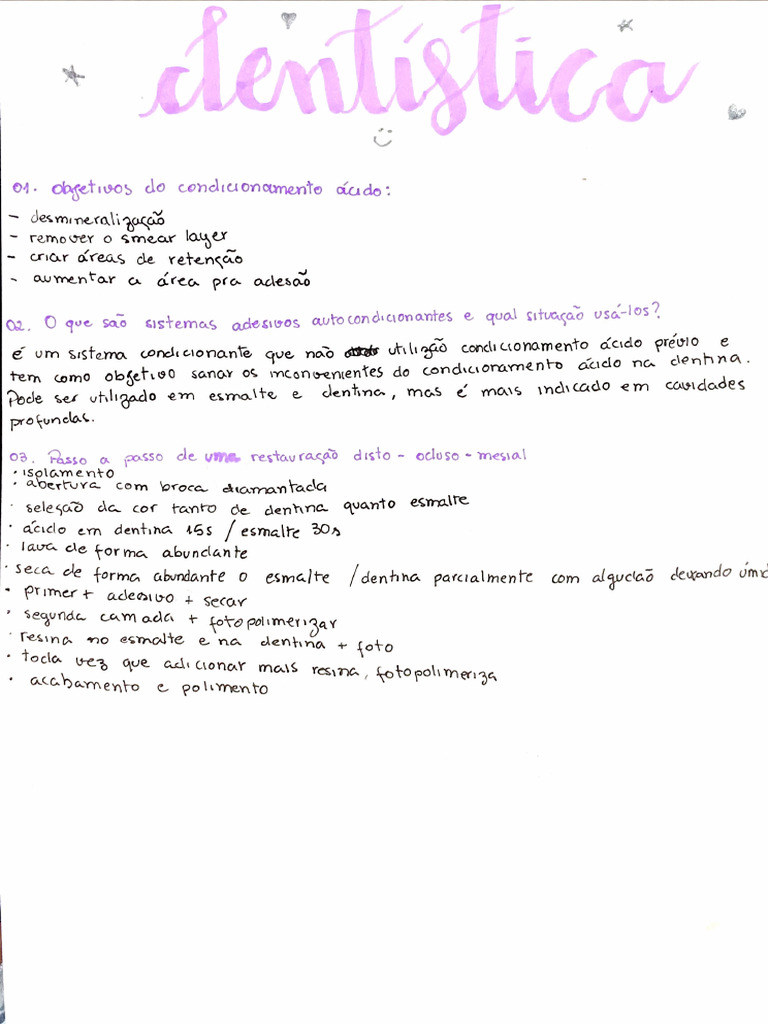 dentística
01. Objetivos do condicionamento ácido:
- desmineralização
- remover o smear layer
- criar áreas de retenção
- aumentar a área pra adesão
02. O que são sistemas adesivos autocondicionantes e qual situação usá-los?
é um sistema condicionante que não utilização condicionamento ácido prévio e
tem como objetivo sanar os inconvenientes do condicionamento ácido na dentina.
Pode ser utilizado em esmalte e dentina, mas é mais indicado em cavidades
profundas.
03. Passo a passo de uma restauração disto - ocluso - mesial
· isolamento
· abertura com broca diamantada
· seleção da cor tanto de dentina quanto esmalte
· ácido em dentina 15s / esmalte 30s
· lava de forma abundante
· seca de forma abundante o esmalte / dentina parcialmente com algodão deixando
· primer + adesivo + secar
· segunda camada + fotopolimerizar
· resina no esmalte e na dentina + foto
· toda vez que adicionar mais resina, fotopolimeriza
· acabamento e polimento